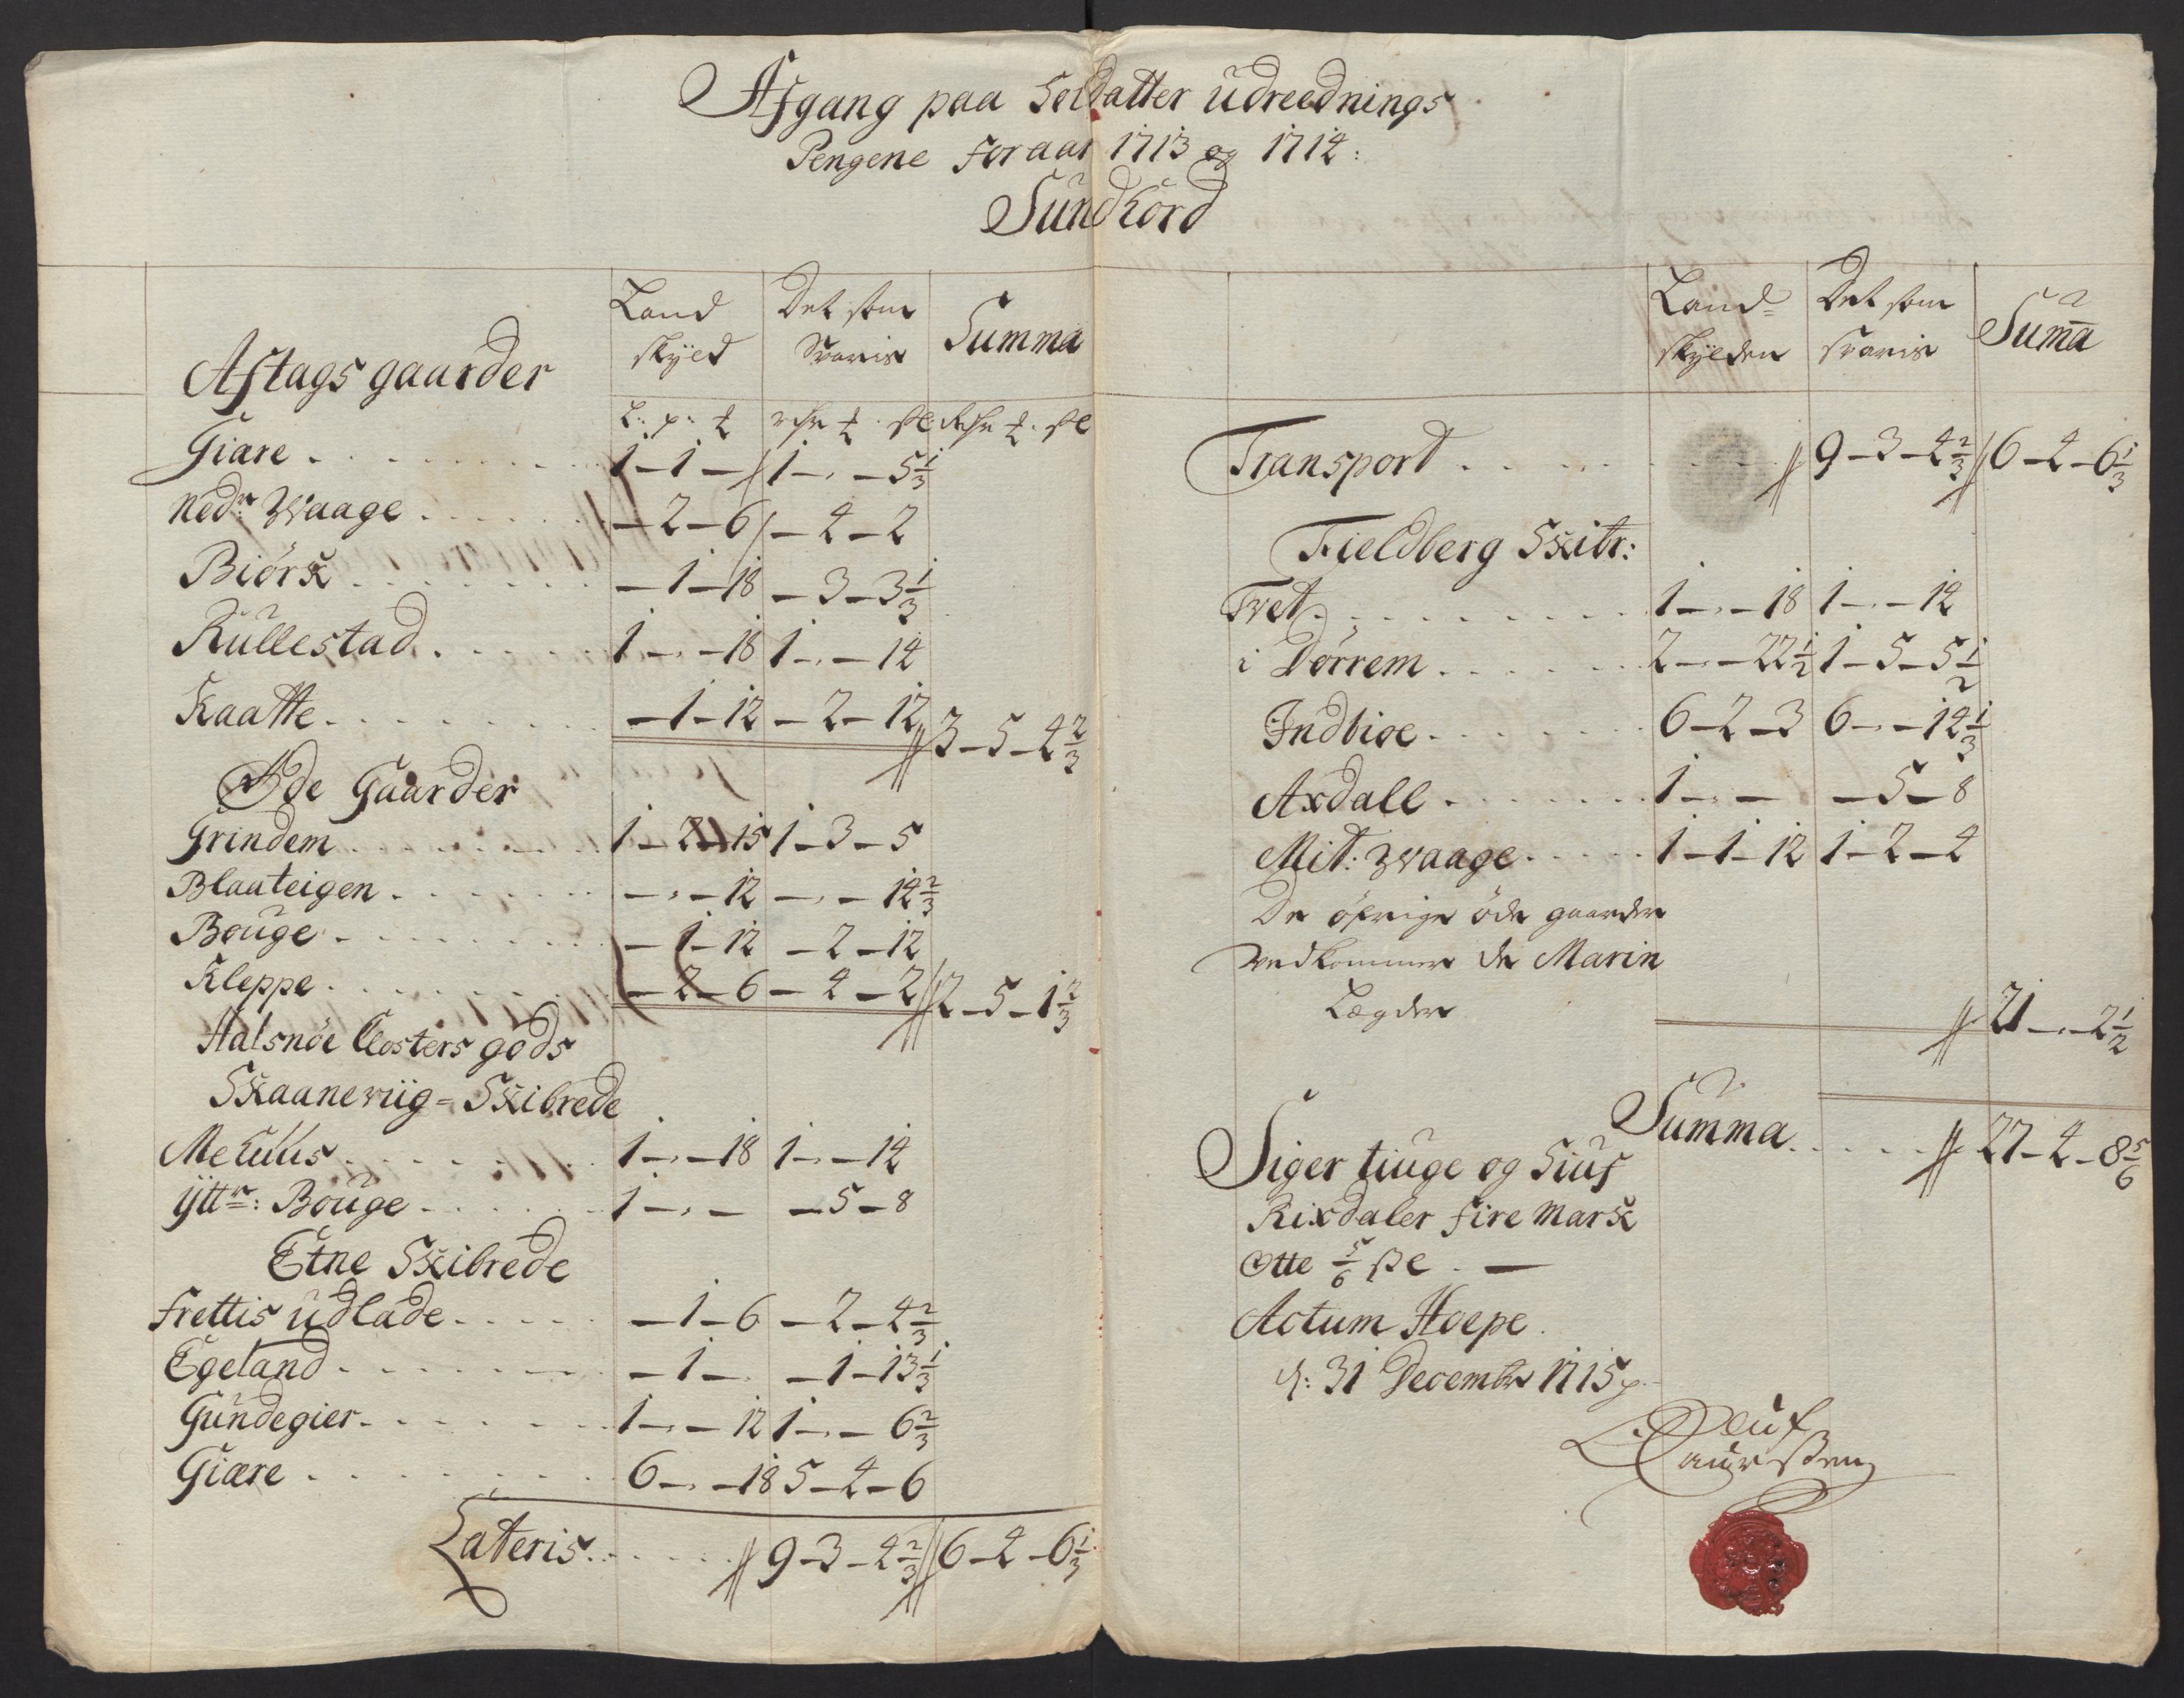 Afgang paa Soldatter udreednings
Pengene for aar 1713 og 1714:
Sundhord
Land skyld | Det som Svaris | Summa
Aftags gaarder
L: p: ℔ | rdr ℔ sk | Rdr ℔ sk
Giære . . . 1 - 1 - // 1 - „ - 5 1/3
Nedr: Waage . . . - 2 - 6 / - 4 - 2
Biørk . . . - 1 - 18 - 3 - 3 1/3
Rullestad . . . 1 - „ - 18 1 - „ - 14
Kaatte . . . - 1 - 12 - 2 - 12 // 3 - 5 - 4 2/3
Øde Gaarder
Grindem . . . 1 - 2 - 15 1 - 3 - 5
Blaateigen . . . - „ - 12 - „ - 14 2/3
Bouge . . . - 1 - 12 - 2 - 12
Kleppe . . . - 2 - 6 - 4 - 2 // 2 - 5 - 1 2/3
Halsnöe Closters gods
Skaaneviig = Skibrede
Mehuus . . . 1 - „ - 18 1 - „ - 14
Yttr: Bouge . . . 1 - „ - - 5 - 8
Etne Skibrede
Frettis udlade . . . - 1 - 6 - 2 - 4 2/3
Egeland . . . - 1 - - 1 - 13 1/3
Gundegier . . . 1 - „ - 12 1 - „ - 6 2/3
Giære . . . 6 - „ - 18 5 - 4 - 6
Lateris . . . // 9 - 3 - 4 2/3 // 6 - 4 - 6 1/3
Land= skylden | Det som svaris | Suma
Transport . . . // 9 - 3 - 4 2/3 // 6 - 4 - 6 1/3
Fieldberg Skibr:
Tvet . . . 1 - „ - 18 1 - „ - 14
i Dørrem . . . 2 - „ - 22 1/2 1 - 5 - 5 1/2
Indbioe . . . 6 - 2 - 3 6 - „ - 14 1/3
Axdall . . . 1 - „ - - 5 - 8
Mit: Waage . . . 1 - 1 - 12 1 - 2 - 4
De öfrige öde gaarder
vedkommer de Marin
Lægder // 21 - „ - 2 1/2
Summa . . . // 27 - 4 - 8 5/6
Siger tiuge og Siuf
Rixdaler fire Mark
Otte 5/6 sk . —
Actum Hoepe.
d: 31 Decembr 1715
Oluf
Laursen